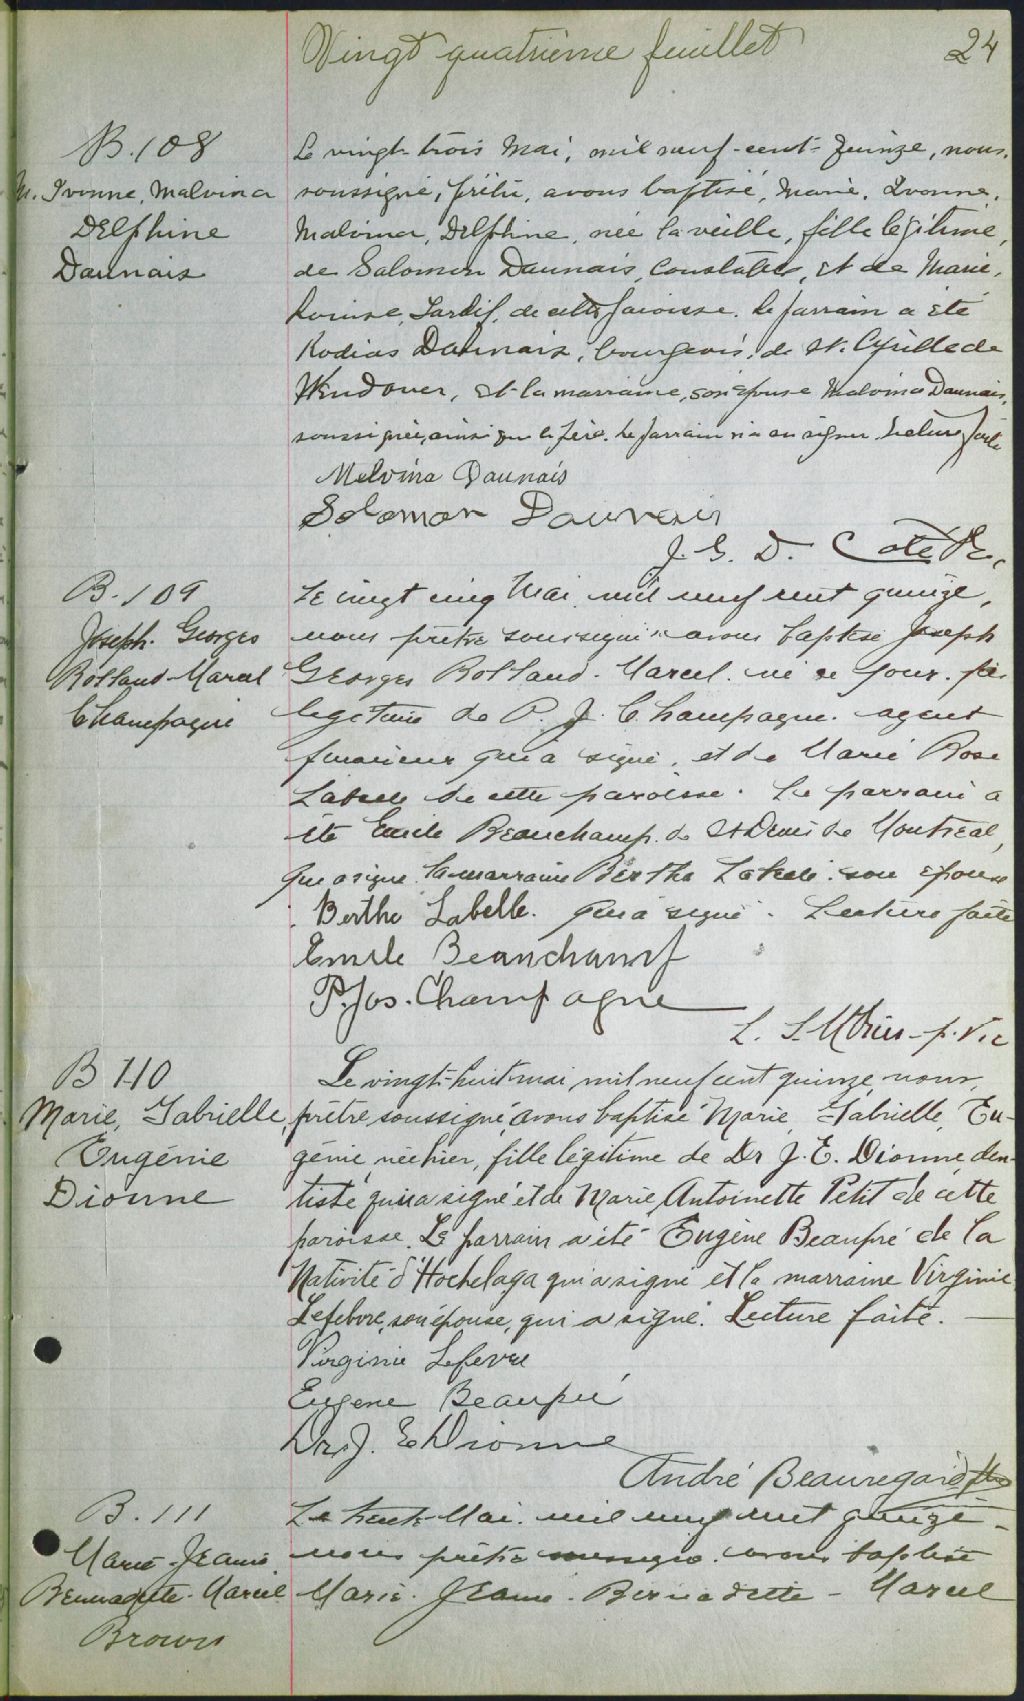 Vingt quatrième feuillet 24
B. 108
M. Ivonne, Malvina
Delphine
Daunais
Le vingt-trois Mai, mil neuf-cent-quinze, nous,
soussigné, prêtre, avons baptisé, Marie, Ivonne,
Malvina, Delphine, née la veille, fille légitime,
de Salomon Daunais, Constable, et de Marie,
Louise, Tardif, de cette paroisse. Le parrain a été
Daunais, bourgeois, de St. Cyrille de
Wendover, et la marraine, son épouse Malvina Daunais,
soussignée, ainsi que le père. Le parrain n'a su signer. Lecture faite
Melvina Daunais
Solomon Daunais
J. G. D. Coté Ptre,
B. 109
Joseph. Georges
Rolland-Marcel
Champagne
Le vingt cinq Mai mil neuf cent quinze,
nous prêtre soussigné avons baptisé Joseph
Georges Rolland. Marcel. né ce jour. fils
légitime de P. J. Champagne. agent
financier qui a signé, et de Marie Rose
Labelle de cette paroisse. Le parrain a
été Emile Beauchamp. de St Denis de Montréal,
qui a signé la marraine Bertha Labelle. son épouse
Berthe Labelle. qui a signé. Lecture faite
Emile Beauchamp
P. Jos. Champagne
L. p. Vic
B 110
Marie, Gabrielle,
Eugénie
Dionne
Le vingt-huit mai, mil neuf cent quinze, nous,
prêtre soussigné, avons baptisé Marie, Gabrielle, Eu-
génie, née hier, fille légitime de Dr J. E. Dionne, den-
tiste qui a signé et de Marie, Antoinette Petit de cette
paroisse. Le parrain a été Eugène Beaupré de la
Nativité d'Hochelaga qui a signé et la marraine Virginie
Lefebvre, son épouse, qui a signé. Lecture faite.
Virginie Lefevre
Eugene Beaupré
Dr. J. E. Dionne
André Beauregard ptre
B. 111
Marie-Jeanne
Bernadette-Marcel
Brown
Le trente Mai. mil neuf cent quinze
nous prêtre soussigné. avons baptisé
Marie. Jeanne. Bernadette - Marcel